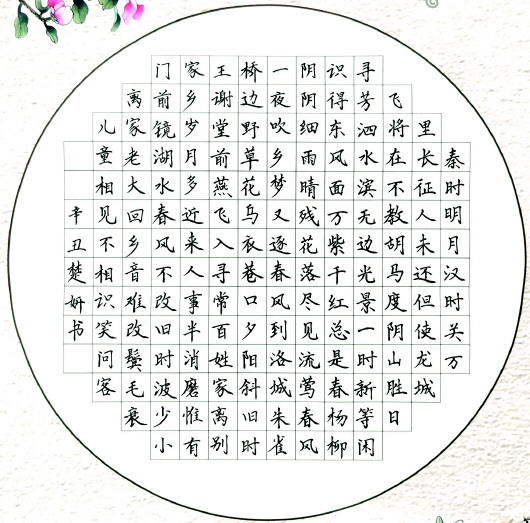 秦时明月汉时关万
里长征人未还但使龙城
飞将在不教胡马度阴山胜日
寻芳泗水滨无边光景一时新等闲
识得东风面万紫千红总是春杨柳
阴阴细雨晴残花落尽见流莺春风
一夜吹乡梦又逐春风到洛城朱雀
桥边野草花乌衣巷口夕阳斜旧时
王谢堂前燕飞入寻常百姓家离别
家乡岁月多近来人事半消磨惟有
门前镜湖水春风不改旧时波少小
离家老大回乡音难改鬓毛衰
儿童相见不相识笑问客
辛丑楚妍书